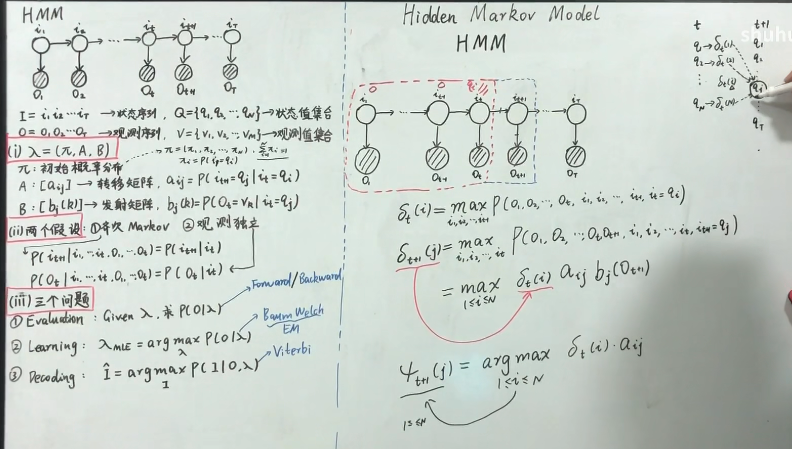 HMM
i₁ i₂ ... iₜ iₜ₊₁ ... i_T
O₁ O₂ Oₜ Oₜ₊₁ O_T
I = i₁ i₂ ... i_T → 状态序列, Q = {q₁, q₂, ..., q_N} → 状态值集合
O = O₁ O₂ ... O_T → 观测序列, V = {v₁, v₂, ..., v_M} → 观测值集合
(i) λ = (π, A, B)
π: 初始概率分布
A: [aᵢⱼ] → 转移矩阵, aᵢⱼ = P(iₜ₊₁ = qⱼ | iₜ = qᵢ)
B: [bⱼ(k)] → 发射矩阵, bⱼ(k) = P(Oₜ = v_k | iₜ = qⱼ)
(ii) 两个假设: ① 齐次 Markov ② 观测独立
P(iₜ₊₁ | iₜ, ... i₁, O₁, ... Oₜ) = P(iₜ₊₁ | iₜ)
P(Oₜ | iₜ, ... i₁, ... Oₜ) = P(Oₜ | iₜ)
(iii) 三个问题
Forward/Backward
① Evaluation: Given λ, 求 P(O|λ)
Baum Welch
EM
② Learning: λ_MLE = arg max_λ P(O|λ)
Viterbi
③ Decoding: Î = arg max_I P(I|O,λ)
Hidden Markov Model
HMM
i₁ ... iₜ₋₁ iₜ iₜ₊₁ ... i_T
O₁ Oₜ₊₁ Oₜ Oₜ₊₁
δₜ(i) = max_{i₁, i₂, ..., iₜ₋₁} P(O₁, O₂, ... Oₜ, i₁, i₂, ..., iₜ₋₁, iₜ = qᵢ)
δₜ₊₁(j) = max_{i₁, i₂, ... iₜ} P(O₁, O₂, ... OₜOₜ₊₁, i₁, i₂, ... iₜ, iₜ₊₁ = qⱼ)
= max_{1≤i≤N} δₜ(i) aᵢⱼ bⱼ(Oₜ₊₁)
ψₜ₊₁(j) = arg max_{1≤i≤N} δₜ(i) · aᵢⱼ
t t+1
q₁ → δₜ(1) q₁
q₂ → δₜ(2) q₂
q_N → δₜ(N)
q_T
shuhu